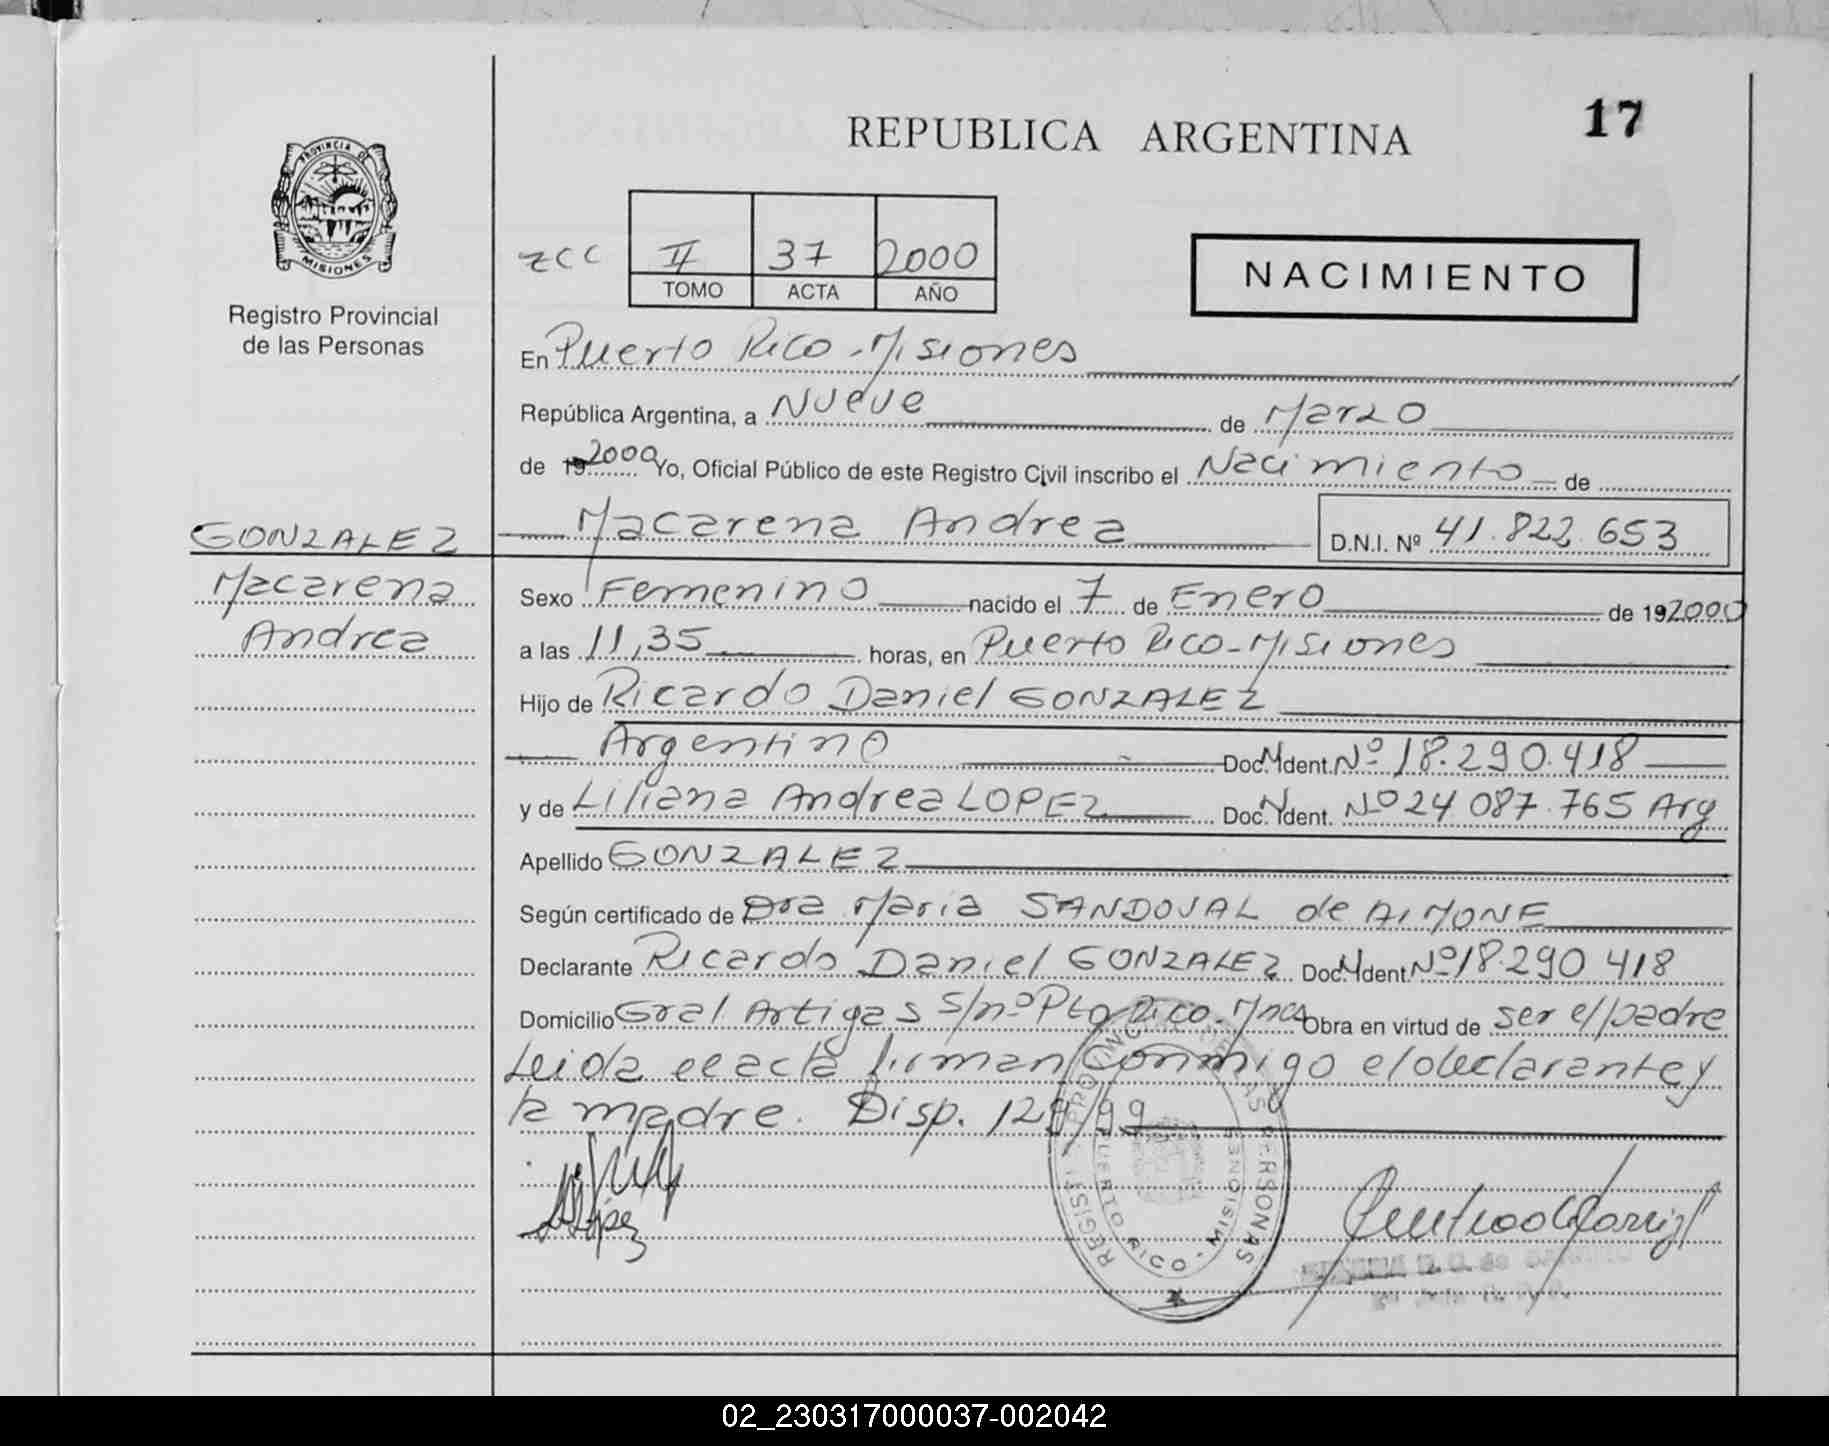 REPUBLICA ARGENTINA
17
PROVINCIA DE
MISIONES
Registro Provincial
de las Personas
II 37 2000
TOMO ACTA AÑO
NACIMIENTO
En Puerto Rico - Misiones
República Argentina, a Nueve de Marzo
de 19 2000 Yo, Oficial Público de este Registro Civil inscribo el Nacimiento de
GONZALEZ
Macarena
Andrea
Macarena Andrea D.N.I. Nº 41.822.653
Sexo Femenino nacido el 7 de Enero de 19 2000
a las 11,35 horas, en Puerto Rico - Misiones
Hijo de Ricardo Daniel GONZALEZ
Argentino Doc. Ident. Nº 18.290.418
y de Liliana Andrea LOPEZ Doc. Ident. Nº 24 087.765 Arg
Apellido GONZALEZ
Según certificado de Dra Maria SANDOVAL de AIMONE
Declarante Ricardo Daniel GONZALEZ Doc. Ident. Nº 18.290 418
Domicilio Gral Artigas s/nº Pto Rico. Mnes Obra en virtud de ser el padre
Leida el acta firman conmigo el declarante y
la madre. Disp. 129/99
López
PUERTO RICO - MISIONES
02_230317000037-002042